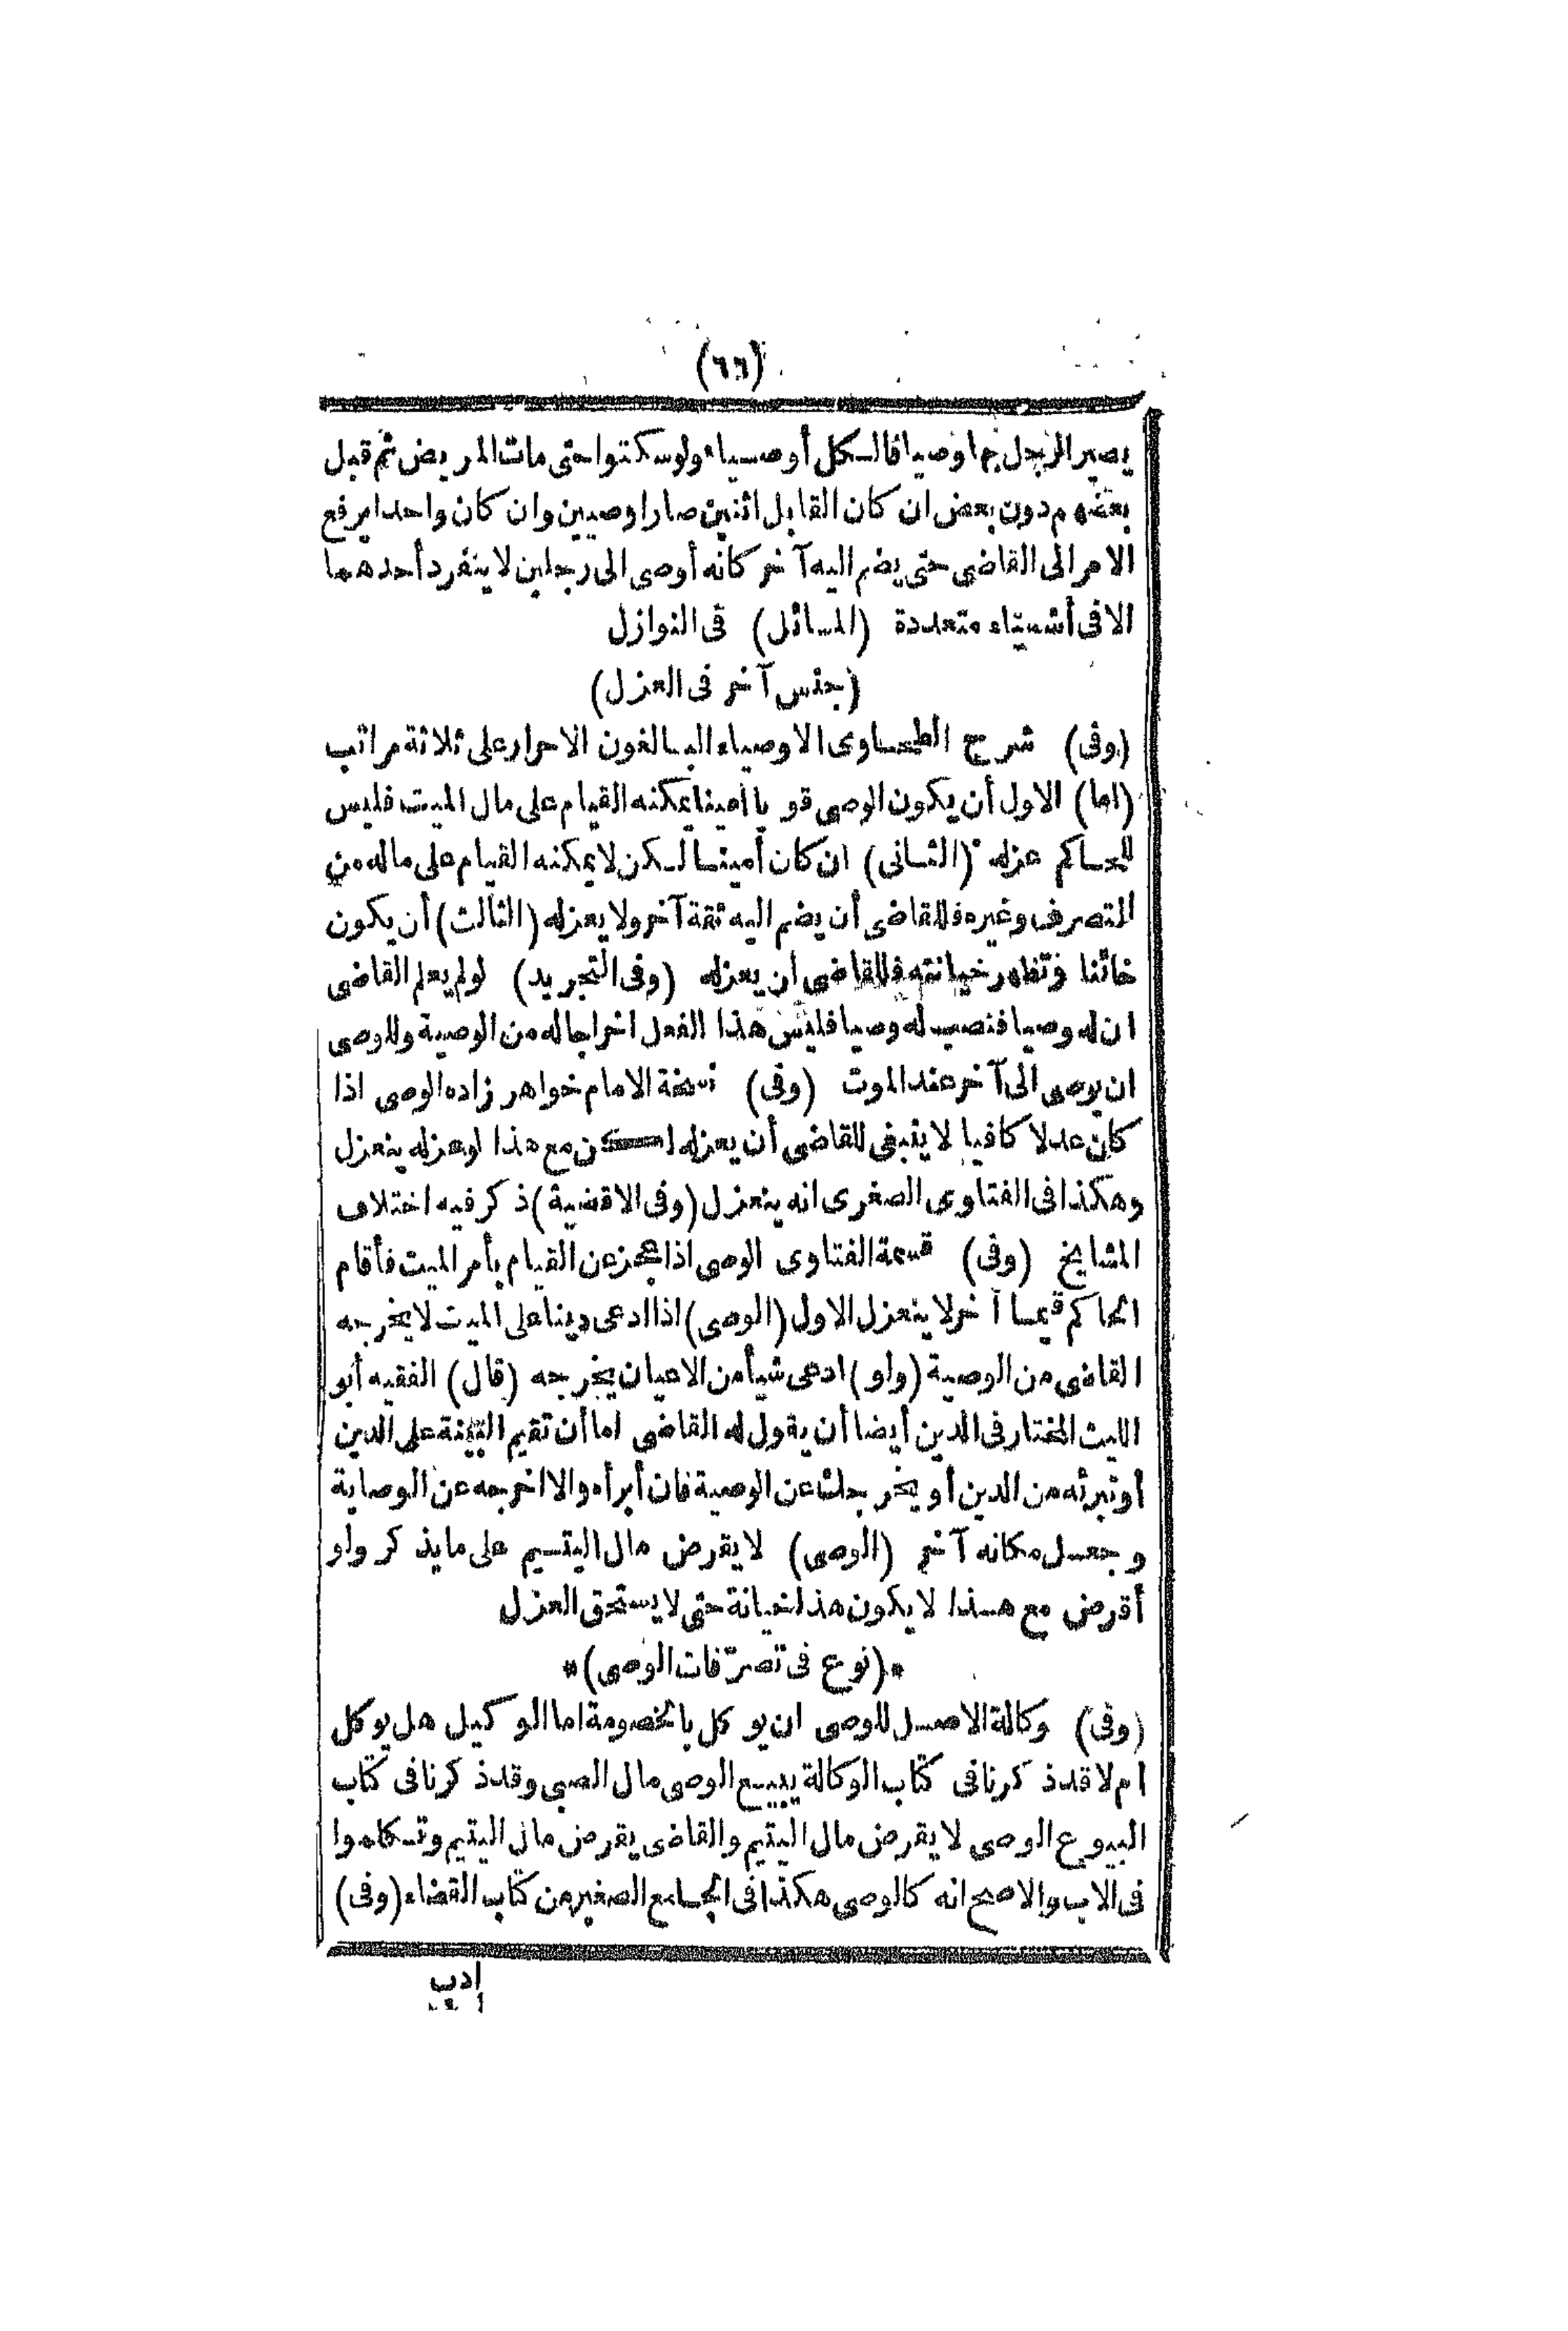 (٦٦)
يصير الرجل بها وصيا فالكل أوصياء ولو سكتوا حتى مات المريض ثم قبل
بعضهم دون بعض ان كان القابل اثنين صارا وصيين وان كان واحدا يرفع
الامر الى القاضى حتى يضم اليه آخر كانه أوصى الى رجلين لا ينفرد أحدهما
الا فى أشياء متعددة (المسائل) فى النوازل
(جنس آخر فى العزل)
(وفى) شرح الطحاوى الاوصياء البالغون الاحرار على ثلاثة مراتب
(اما) الاول أن يكون الوصى قويا أمينا يمكنه القيام على مال الميت فليس
للحاكم عزله (الثانى) ان كان أمينا لكن لا يمكنه القيام على ماله من
التصرف وغيره فللقاضى أن يضم اليه ثقة آخر ولا يعزله (الثالث) أن يكون
خائنا فتظهر خيانته فللقاضى أن يعزله (وفى التجريد) لو لم يعلم القاضى
ان له وصيا فنصب له وصيا فليس هذا الفعل اخراجا له من الوصية وللوصى
ان يوصى الى آخر عند الموت (وفى) نسخة الامام خواهر زاده الوصى اذا
كان عدلا كافيا لا ينبغى للقاضى أن يعزله لكن مع هذا لو عزله ينعزل
وهكذا فى الفتاوى الصغرى انه ينعزل (وفى الاقضية) ذكر فيه اختلاف
المشايخ (وفى) قسمة الفتاوى الوصى اذا عجز عن القيام بأمر الميت فأقام
الحاكم قيما آخر لا ينعزل الاول (الوصى) اذا ادعى دينا على الميت لا يخرجه
القاضى من الوصية (ولو) ادعى شيأ من الاعيان يخرجه (قال) الفقيه أبو
الليث المختار فى الدين أيضا أن يقول له القاضى اما أن تقيم البينة على الدين
أو تبرئه من الدين أو يخرجك عن الوصية فان أبرأه والا اخرجه عن الوصاية
وجعل مكانه آخر (الوصى) لا يقرض مال اليتيم على ما يذكر ولو
أقرض مع هذا لا يكون هذا خيانة حتى لا يستحق العزل
*(نوع فى تصرّفات الوصى)*
(وفى) وكالة الاصل للوصى ان يوكل بالخصومة اما الوكيل هل يوكل
ام لا قد ذكرنا فى كتاب الوكالة ببيع الوصى مال الصبى وقد ذكرنا فى كتاب
البيوع الوصى لا يقرض مال اليتيم والقاضى يقرض مال اليتيم وتكلموا
فى الاب والاصح انه كالوصى هكذا فى الجامع الصغير من كتاب القضاء (وفى)
ادب